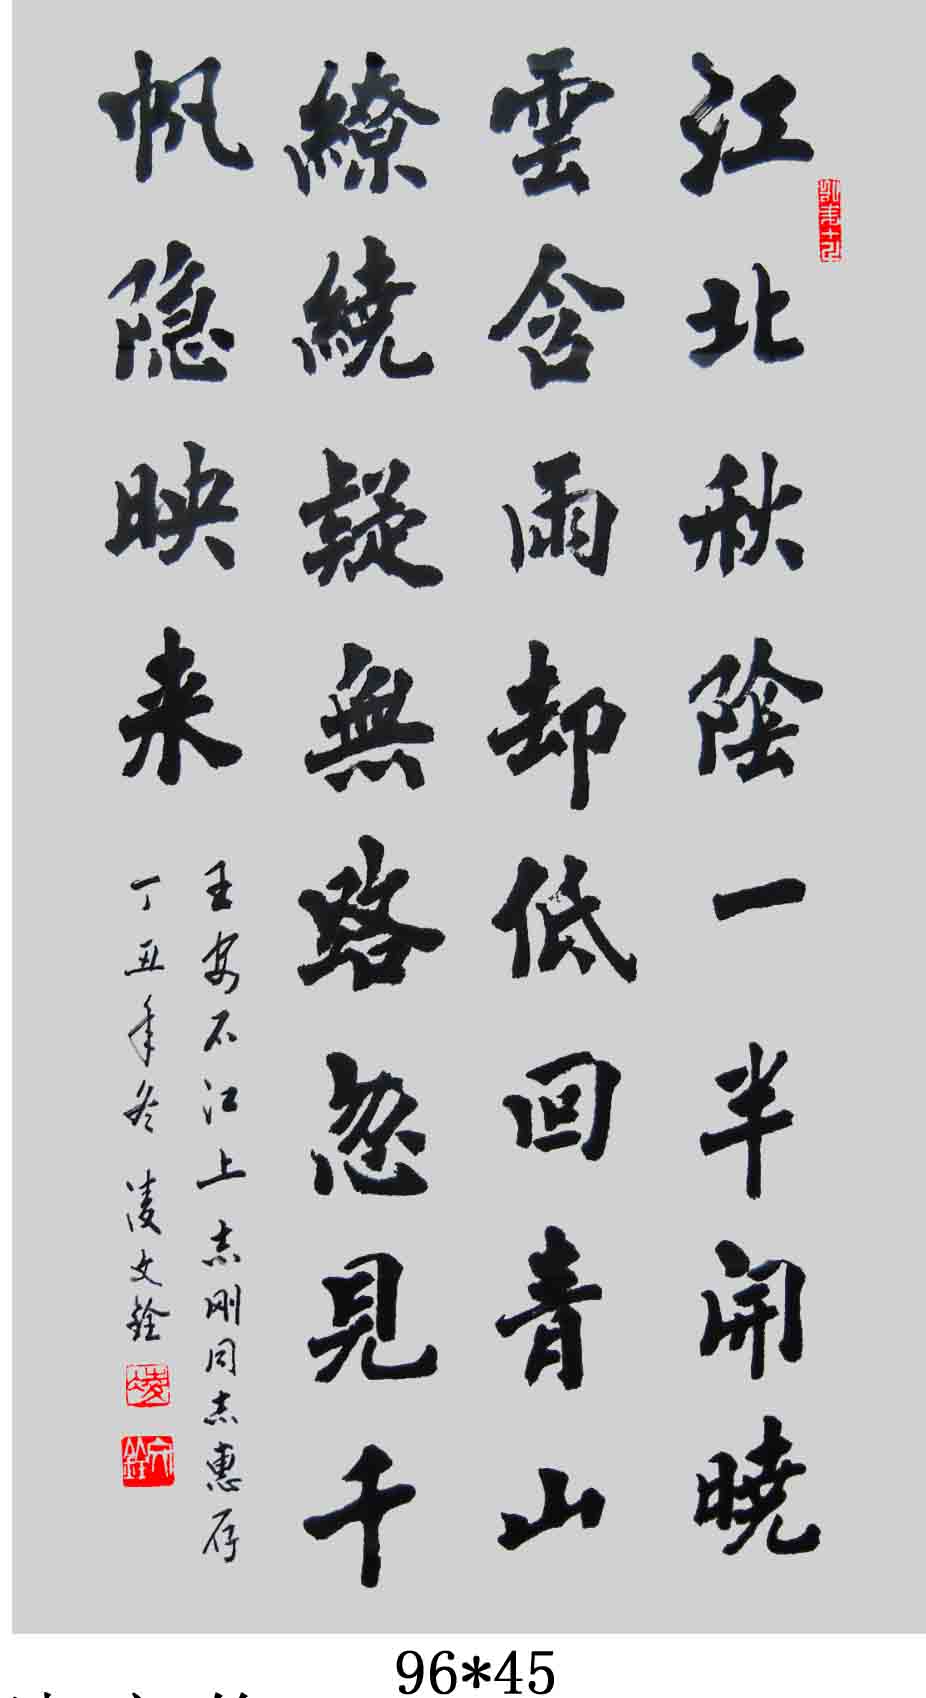 江北秋陰一半開曉
雲含雨却低回青山
繚繞疑無路忽見千
帆隐映来
王安石江上志刚同志惠存
丁丑年冬 凌文銓
96*45